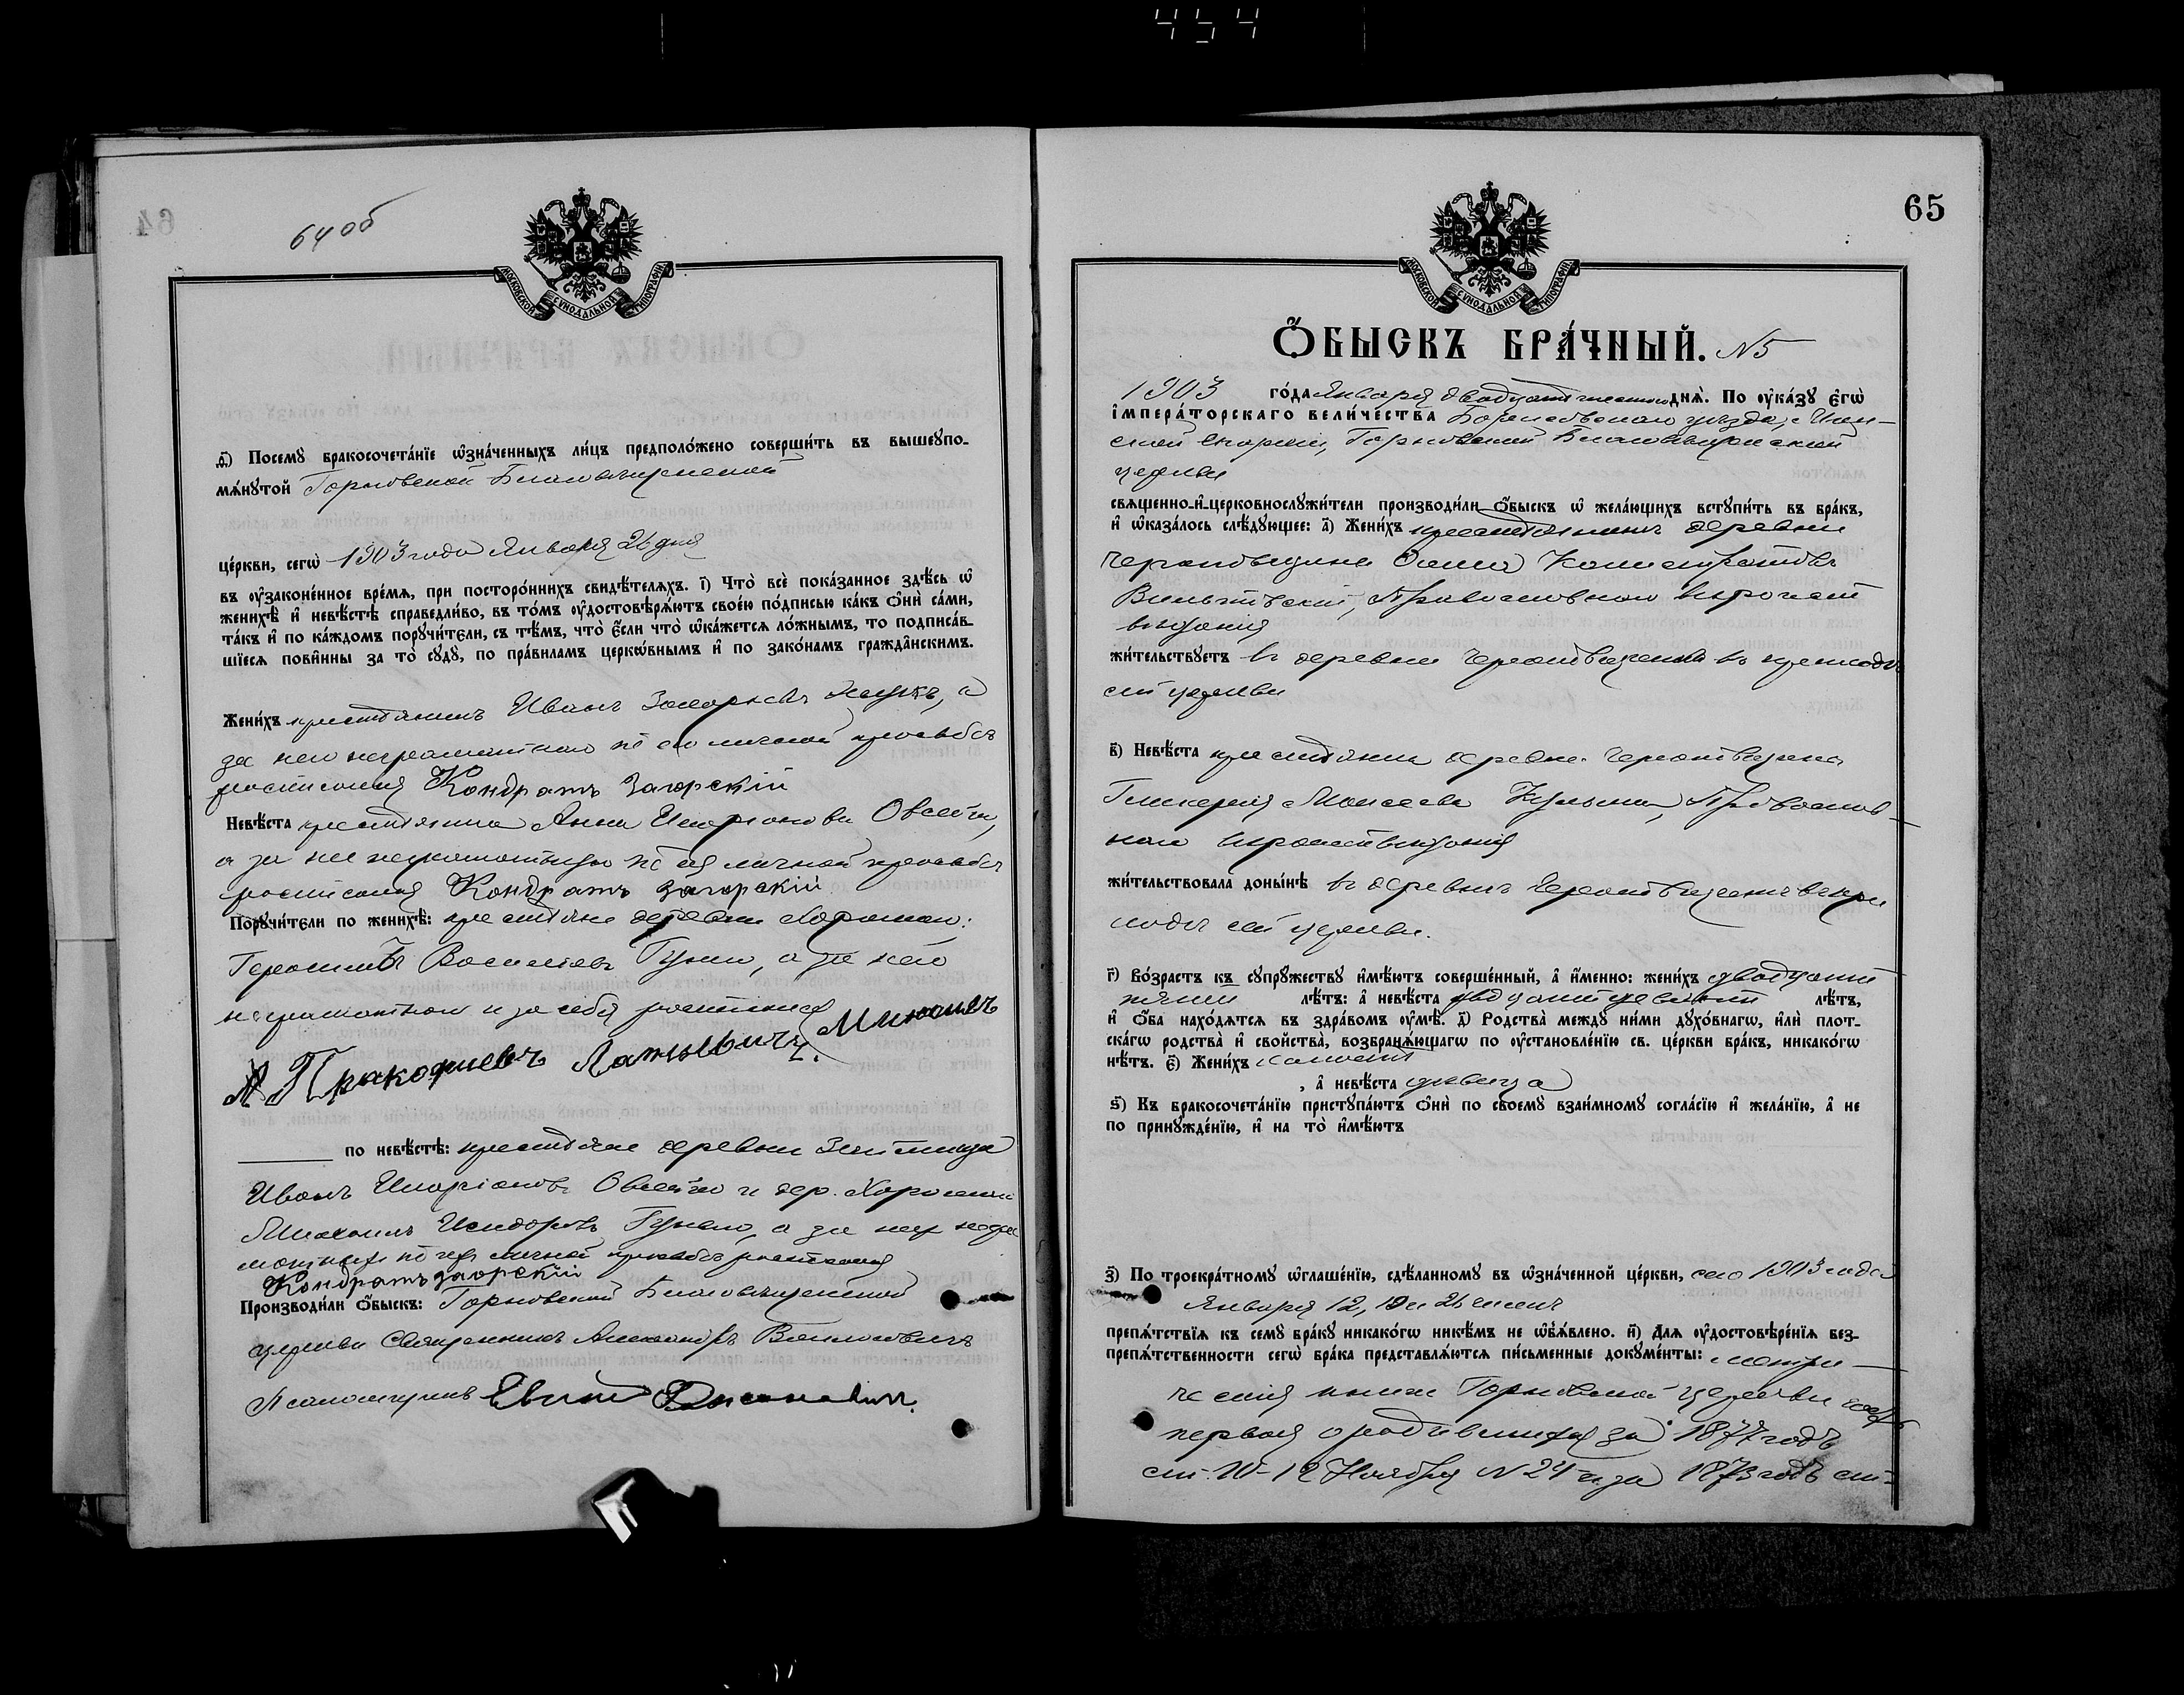 454
64
64 об
МОСКОВСКОЙ СѴНОДАЛЬНОЙ ТИПОГРАФІИ
ѳ҃) Посемꙋ̀ бракосочета́нїе ѡ҆зна́ченныхъ ли́цъ предполо́жено соверши́ть въ вышеꙋпо-
мѧ́нꙋтой Горновской Благовѣщенской
це́ркви, сегѡ̀ 1903 года Января 26 дня
въ ᲂу҆зако́ненное вре́мѧ, при посторо́ннихъ свидѣ́телѧхъ. і҃) Что̀ всѐ пока́занное здѣ́сь ѡ҆
женихѣ̀ и҆ невѣ́стѣ справедли́во, въ то́мъ ᲂу҆достовѣрѧ́ютъ свое́ю по́дписью ка́къ ѻ҆нѝ са́ми,
та́къ и҆ по ка́ждомъ порꙋчи́тели, съ тѣ́мъ, что̀ є҆́сли что̀ ѡ҆ка́жетсѧ ло́жнымъ, то подписа́в-
шїесѧ пови́нны за то̀ сꙋдꙋ̀, по пра́виламъ церко́внымъ и҆ по зако́намъ гражда́нскимъ.
Жени́хъ крестьянинъ Иванъ Захарьевъ а
за него неграмотнаго по его личной просьбѣ
росписался Кондратъ Загорскій
Невѣ́ста крестьянка Анна Иларіонова Овсейко,
а за нее неграмотную по ея личной просьбѣ
росписался Кондратъ Загорскій
Порꙋчи́тели по женихѣ̀: крестьяне деревни
Василіевъ а за него
неграмотнаго и за себя росписался
Прокофіевъ Латышевичъ
по невѣ́стѣ: крестьяне деревни
Иванъ Иларіоновъ Овсейко и дер.
Михаилъ Исидоровъ а за них негра
мотныхъ по ихъ личной просьбѣ росписался
Кондратъ Загорскій
Производи́ли ѻ҆́быскъ: Горновской Благовѣщенской
церкви Священникъ Александръ
Псаломщикъ
65
МОСКОВСКОЙ СѴНОДАЛЬНОЙ ТИПОГРАФІИ
Ѻ҆́БЫСКЪ БРА́ЧНЫЙ. N5
1903 го́да Января двадцать шестого днѧ̀. По ᲂу҆ка́зꙋ Є҆гѡ̀
і҆мпера́торскаго вели́чества Борисовскаго уѣзда, Мин-
ской епархіи, Горновской Благовѣщенской
церкви
свѧще́нно-и҆-церковнослꙋжи́тели производи́ли ѻ҆́быскъ ѡ҆ жела́ющихъ встꙋпи́ть въ бра́къ,
и҆ ѡ҆каза́лось слѣ́дꙋющее: а҃) Жени́хъ крестьянинъ деревни
Православнаго вѣроиспо
вѣданія
жи́тельствꙋетъ въ деревнѣ въ приходѣ
сей церкви
в҃) Невѣ́ста крестьянка деревни
Гликерія Моисеева Православ-
наго вѣроисповѣданія
жи́тельствовала доны́нѣ въ деревнѣ въ при
ходѣ сей церкви.
г҃) Во́зрастъ къ сꙋпрꙋ́жествꙋ и҆мѣ́ютъ соверше́нный, а҆ и҆́менно: жени́хъ двадцати
пяти лѣ́тъ: а҆ невѣ́ста двадцати девяти лѣ́тъ,
и҆ ѻ҆́ба нахо́дѧтсѧ въ здра́вомъ ᲂу҆мѣ̀. д҃) Родства̀ междꙋ̀ ни́ми дꙋхо́внагѡ, и҆лѝ плот-
ска́гѡ родства̀ и҆ сво́йства̀, возбранѧ́ющагѡ по ᲂу҆становле́нїю св. це́ркви бра́къ, никако́гѡ
нѣ́тъ. є҃) Жени́хъ холостъ
, а҆ невѣ́ста дѣвица
ѕ҃) Къ бракосочета́нїю пристꙋпа́ютъ ѻ҆нѝ по своемꙋ̀ взаи́мномꙋ согла́сїю и҆ жела́нїю, а҆ не
по принꙋжде́нїю, и҆ на то̀ и҆мѣ́ютъ
з҃) По троекра́тномꙋ ѡ҆глаше́нїю, сдѣ́ланномꙋ въ ѡ҆зна́ченной це́ркви, сего 1903 года
Января 12, 19 и 26 чиселъ
препѧ́тствїѧ къ семꙋ̀ бра́кꙋ никако́гѡ никѣ́мъ не ѡ҆б̾ѧ́влено. и҃) Длѧ ᲂу҆достовѣре́нїѧ без-
препѧ́тственности сегѡ̀ бра́ка представлѧ́ютсѧ пи́сьменные докꙋме́нты: метри-
ческія книги Горновской церкви часть
первая о родившихся за 1877 годъ
ст. 10-12 Ноября N 24 и за 1873 годъ ст-